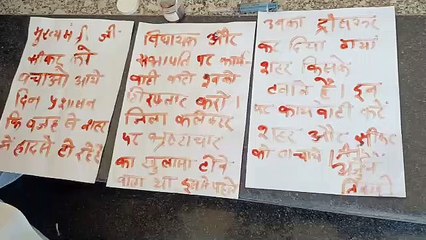 मुख्यमंत्री जी
संकट को
बचाओ आये
दिन प्रशासन
कि वजह से शहर
मे हादसे हो रहे है
विधायक और
सभापति पर कार्य
वाही करो इनको
गिरफ्तार करो।
जिला कलेक्टर
पर भ्रष्टाचार
का खुलासा होने
वाला था इससे पहले
उनका ट्रांसफर
कर दिया गया
शहर किसके
हवाले है। इन
पर कार्यवाही करें
शहर और
को बचाये।